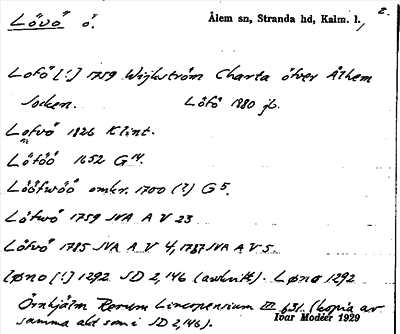 Lövö ö.
Ålem sn, Stranda hd, Kalm. l., 2.
Lofö [!] 1759 Wijkström Charta öfver Åhlem
socken. Löfö 1880 jb.
Lofvö 1826 Klint.
Löföö 1652 G 14.
Lööfwöö omkr. 1700 (?) G 5.
Löfwö 1759 JVA A V 23
Löfvö 1785 JVA A V 4, 1787 JVA A V 5.
Iøno [!] 1292 SD 2,146 (avskrift). Lønø 1292
Örnhjälm Rerum Lincopensium III 631 (kopia av
samma akt som i SD 2,146).
Ivar Modéer 1929